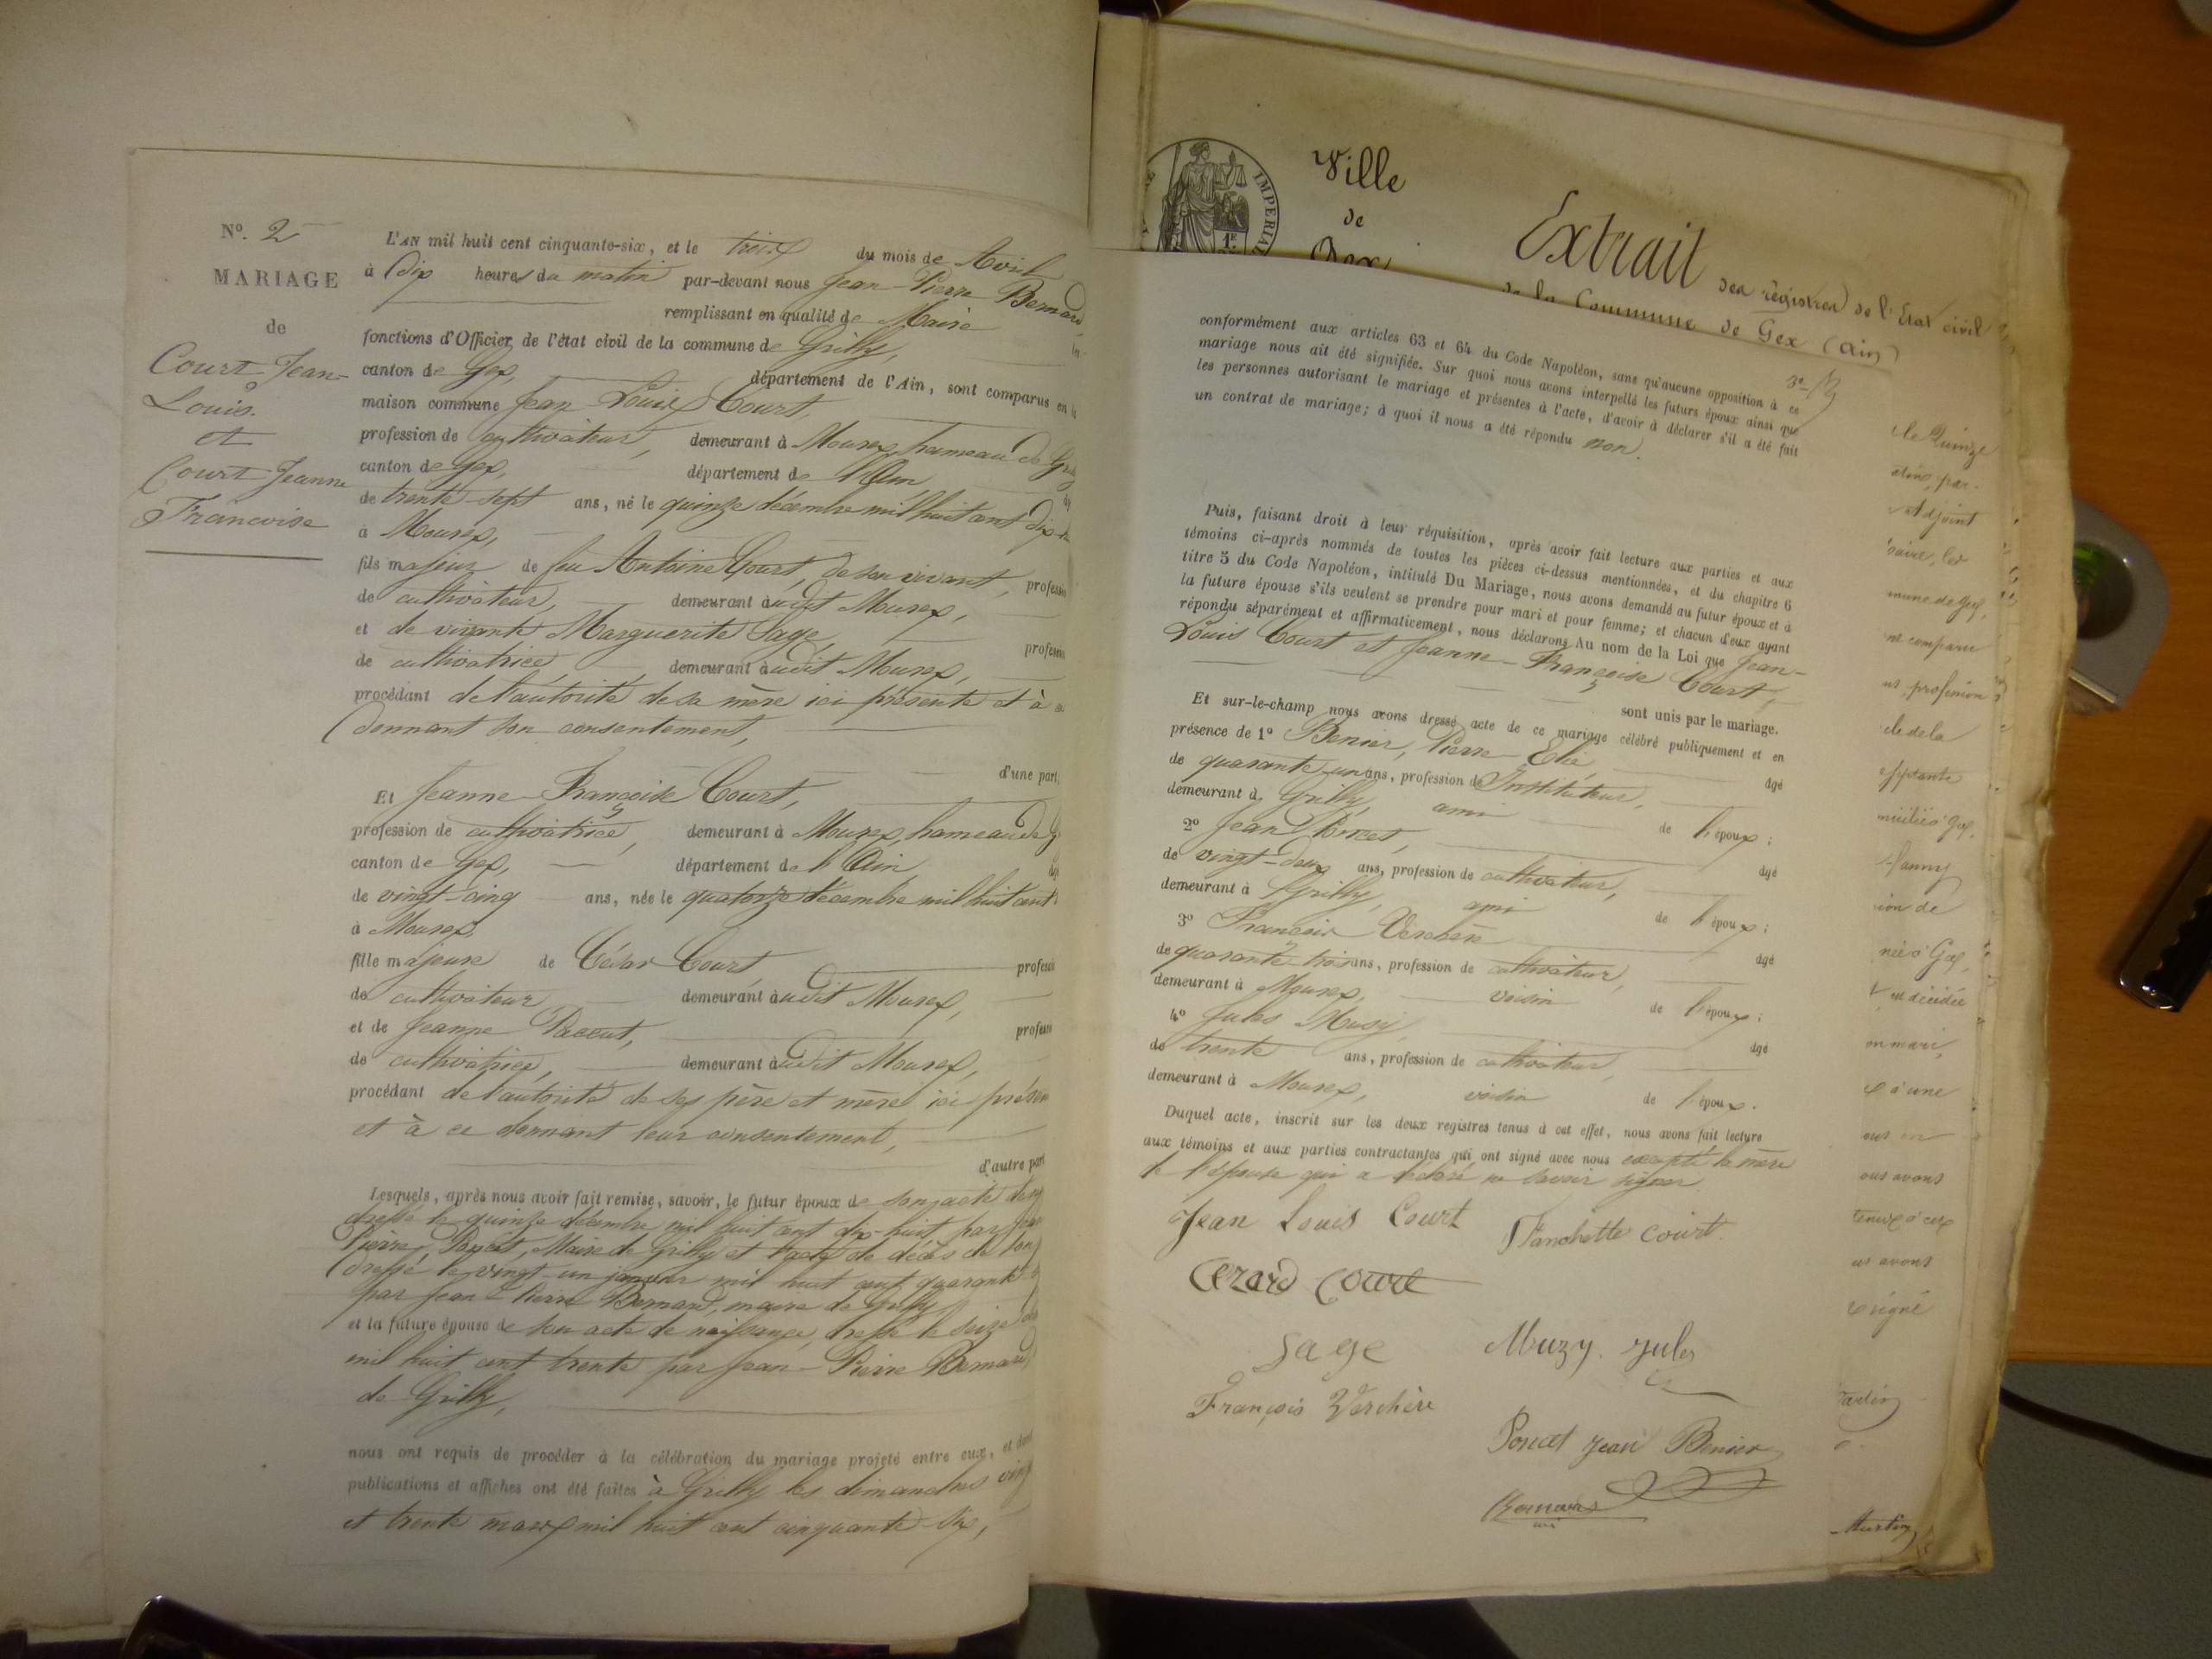 N°. 2
MARIAGE
de
Court Jean-
Louis.
et
Court Jeanne
Francoise
L'AN mil huit cent cinquante-six, et le trois du mois de Avril
à dix heures du matin par-devant nous Jean-Pierre Bernard,
remplissant en qualité de Maire
fonctions d'Officier de l'état civil de la commune de Grilly,
canton de Gex, département de l'Ain, sont comparus en la
maison commune Jean Louis Court,
profession de cultivateur, demeurant à Mourex, hameau de
canton de Gex, département de l'Ain
de trente-sept ans, né le quinze décembre mil huit cent dix-
à Mourex,
fils majeur de feu Antoine Court, de son vivant, profession
de cultivateur, demeurant audit Mourex,
et de vivante Marguerite Sage, profession
de cultivatrice, demeurant audit Mourex,
procédant de l'autorité de sa mère ici présente et à
donnant son consentement,
d'une part,
Et Jeanne-Françoise Court,
profession de cultivatrice, demeurant à Mourex, hameau de
canton de Gex, département de l'Ain
de vingt-cinq ans, née le quatorze décembre mil huit cent
à Mourex,
fille majeure de César Court, profession
de cultivateur demeurant audit Mourex,
et de Jeanne Paccut, profession
de cultivatrice, demeurant audit Mourex,
procédant de l'autorité de ses père et mère ici
et à ce donnant leur consentement,
d'autre part
Lesquels, après nous avoir fait remise, savoir, le futur époux de son acte de
dressé le quinze décembre mil huit cent dix-huit par Jean
Pierre Poncet, Maire de Grilly et l'acte de décès de son
dressé le vingt-un janvier mil huit cent quarante
par Jean-Pierre Bernard, maire de Grilly
et la future épouse de son acte de naissance, dressé le seize
mil huit cent trente par Jean-Pierre Bernard
de Grilly,
nous ont requis de procéder à la célébration du mariage projeté entre eux, et dont
publications et affiches ont été faites à Grilly les dimanches
et trente mars mil huit cent cinquante-six,
IMPERIAL
1F
Ville
de
Gex
Extrait des registres de l'Etat civil
de la Commune de Gex (Ain)
conformément aux articles 63 et 64 du Code Napoléon, sans qu'aucune opposition à ce
mariage nous ait été signifiée. Sur quoi nous avons interpellé les futurs époux ainsi que
les personnes autorisant le mariage et présentes à l'acte, d'avoir à déclarer s'il a été fait
un contrat de mariage; à quoi il nous a été répondu non.
Puis, faisant droit à leur réquisition, après avoir fait lecture aux parties et aux
témoins ci-après nommés de toutes les pièces ci-dessus mentionnées, et du chapitre 6
titre 5 du Code Napoléon, intitulé Du Mariage, nous avons demandé au futur époux et à
la future épouse s'ils veulent se prendre pour mari et pour femme; et chacun d'eux ayant
répondu séparément et affirmativement, nous déclarons Au nom de la Loi que Jean-
Louis Court et Jeanne-Françoise Court,
sont unis par le mariage.
Et sur-le-champ nous avons dressé acte de ce mariage célébré publiquement et en
présence de 1° Benier, Pierre-Elie âgé
de quarante-un ans, profession de Instituteur,
demeurant à Grilly, ami de l'époux;
2° Jean Poncet, âgé
de vingt-deux ans, profession de cultivateur,
demeurant à Grilly, ami de l'époux;
3° François Verchère âgé
de quarante-trois ans, profession de cultivateur,
demeurant à Mourex, voisin de l'époux;
4° Jules Musy, âgé
de trente ans, profession de cultivateur,
demeurant à Mourex, voisin de l'époux.
Duquel acte, inscrit sur les deux registres tenus à cet effet, nous avons fait lecture
aux témoins et aux parties contractantes qui ont signé avec nous excepté la mère
de l'épouse qui a déclaré ne savoir signer
Jean Louis Court
Fanchette Court.
Cezard Court
Sage
Muzy. Jules
François Verchère
Poncet Jean
Benier
Bernard
le Quinze
Adjoint
mune de Gex,
profession
de de la
Fanny
ion de
née à Gex,
est décédée
on mari,
à une
ous avons
signé
Martin